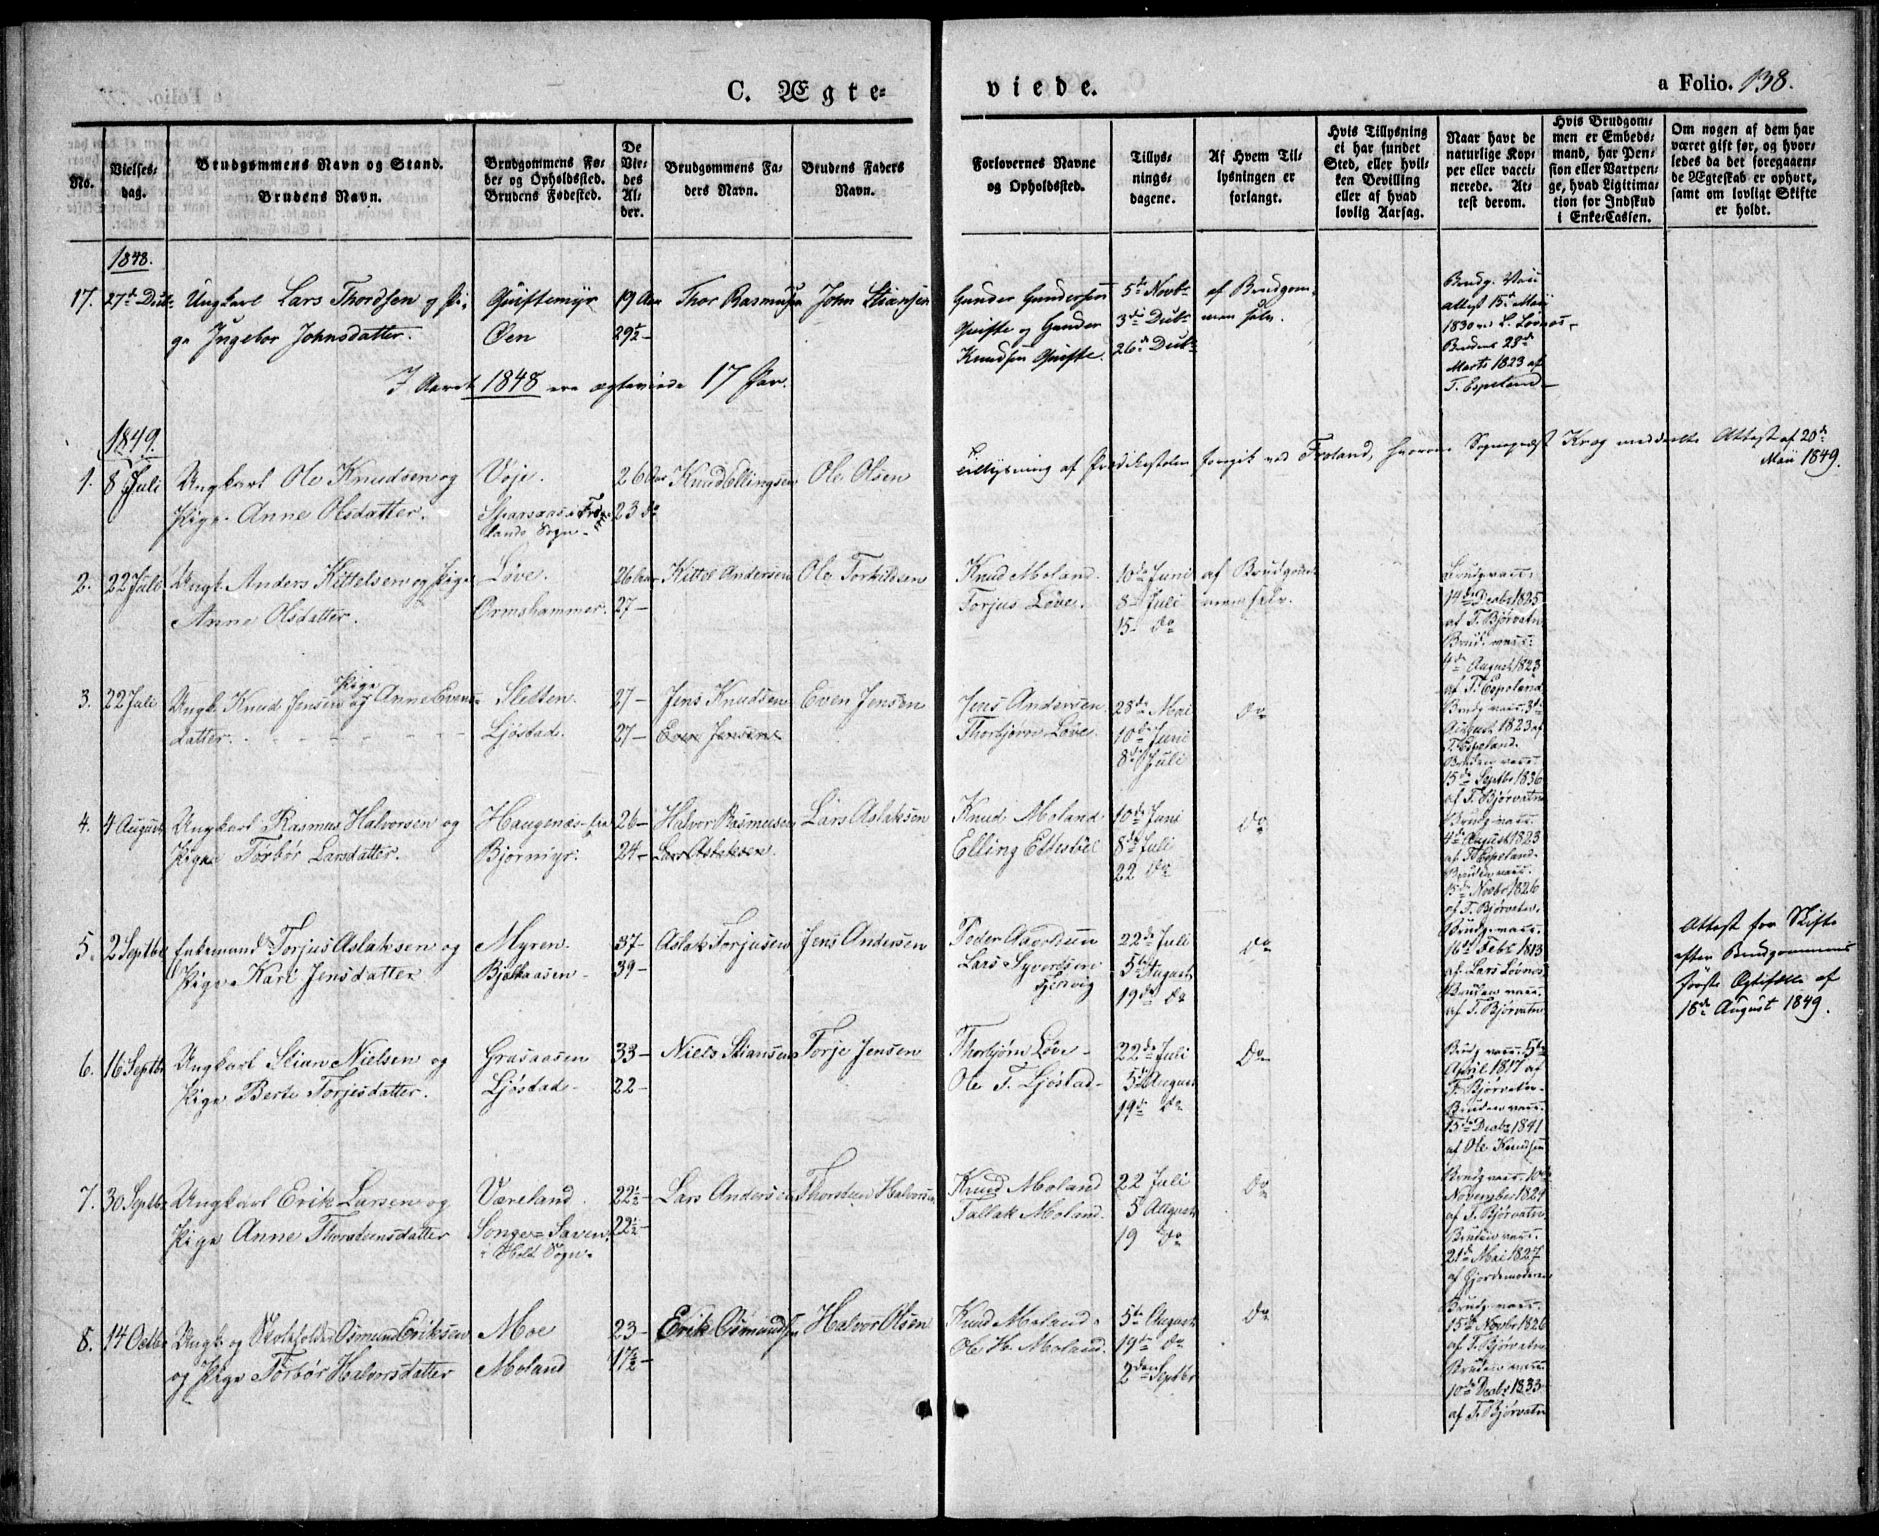 C. Ægte= viede. a Folio. 138.
No.
Vielses-
dag.
Brudgommens Navn og Stand.
Brudens Navn.
Brudgommens Fø-
de- og Opholdssted.
Brudens Fødested.
De
Vie-
des
Al-
der.
Brudgommens Fa-
ders Navn.
Brudens Faders
Navn.
Forlovernes Navne
og Opholdssted.
Tillys-
nings-
dagene.
Af Hvem Til-
lysningen er
forlangt.
Hvis Tillysning
ei har fundet
Sted, eller hvil-
ken Bevilling
eller af hvad
lovlig Aarsag.
Naar havt de
naturlige Kop-
per eller vacci-
nerede. At-
test derom.
Hvis Brudgom-
men er Embeds-
mand, har Pen-
sion eller Vartpen-
ge, hvad Ligitima-
tion for Indskud
i Enke-Cassen.
Om nogen af dem har
været gift før, og hvor-
ledes da det foregaaen-
de Ægteskab er ophørt,
samt om lovligt Skifte
er holdt.
1848.
17. 27de Decbr Ungkarl Lars Thordsen og Pi-
ge Ingebor Johnsdatter.
Qvistemyr
Øen
19 Aar
29½ –
Thor Rasmusen
John Stiansen
Gunder Gundersen
Qviste og Gunder
Knudsen Qviste.
5te Novbr
3die Decbr
26de Decbr
af Brudgom-
men selv.
Brudg. Vacc.
attest 15de Maii
1830 ved L. Løvnæs.
Brudens 23de
Marts 1823 af
T. Espeland
I Aaret 1848 ere ægteviede 17 Par.
1849.
1. 8 Juli Ungkarl Ole Knudsen og
Pige Anne Olsdatter.
Vøje.
Sparsaas i Fro-
lands Sogn
26 Aar
23 do
Knud Ellingsen
Ole Olsen
Tillysning af Prædikestolen foregik ved Froland, hvorom Sognepræst Krog meddeelte Attest af 20de
Maii 1849.
2. 22 Juli Ungk. Anders Kittelsen og Pige
Anne Olsdatter.
Løve.
Ormshammer.
26 Aar
27 –
Kittel Andersen
Ole Torkildsen
Knud Moland.
Torjus Løve.
10de Juni
8 – Juli
15 – do
af Brudgom-
men selv.
Brudg. vacc.
14de Decbr 1825
af T. Bjørvatn
Brud. vacc.
4de August 1823
af T. Espeland
3. 22 Juli Ungk. Knud Jensen og Pige Anne Evens-
datter.
Sletten.
Ljøstad.
27 –
27 –
Jens Knudsen
Even Jensen
Even Jensen
Jens Andersen
Thorbjørn Løve
28de Mai
10de Juni
8de Juli
do
Brudg. vacc. 3de
August 1823 af
T. Espeland.
Bruden vacc.
15de Septbr 1836
af T. Bjørvatn
4. 4 August Ungkarl Rasmus Halvorsen og
Pige Torbor Larsdatter.
Haugenæs
Bjormyr.
26 –
24 –
Halvor Rasmusen
Lars Aslaksen.
Lars Aslaksen
Knud Moland
Elling Ettestøl
10de Juni
8de Juli
22 do
do
Brudg. vacc.
4de August 1823
af T. Espeland.
Bruden vacc.
15de Novbr 1826
af T. Bjørvatn.
5. 2 Septbr Enkemand Torjus Aslaksen og
Pige Kari Jensdatter
Myren.
Bjelkaasen
37 –
39 –
Aslak Torjusen
Jens Andersen
Peder Aavoldsen
Lars Syvertsen
22de Juli
5te August
19de do
do
Brudg. vacc.
16de Febr 1813
af Lars Løvnæs
Bruden vacc.
af T. Bjørvatn
Attest for Skifte
efter Brudgommens
første Ægtefælle af
18de August 1849.
6. 16 Septbr Ungkarl Stian Nielsen og
Pige Berte Torjesdatter.
Grasaasen
Ljøstad
33 –
22 –
Niels Stiansen
Torje Jensen
Thorbjørn Løve
Ole T. Ljøstad
22de Juli
5te August
19de do
do
Brudg. vacc. 5te
April 1817 af
T. Bjørvatn
Bruden vacc.
15de Decbr 1841
af Ole Knudsen
7. 30 Septbr Ungkarl Erik Larsen og
Pige Anne Thorsteensdatter
Væreland.
Songe – Saven
i Holt Sogn
22½ –
22½ –
Lars Andersen
Thorsteen Halvorsen
Knud Moland
Tallak Moland.
22 Juli
5 August
19 do
do
Brudg. vacc. 10de
November 1824
af T. Bjørvatn.
Bruden vacc.
21de Mai 1827
af Gjordemoderen
8. 14 Octbr Ungk. og Skoleholder Osmund Eriksen
og Pige Torbor Halvorsdatter
Moe
Moland
23 –
17½ –
Erik Osmundsen
Halvor Olsen
Knud Moland
Ole H. Moland.
5te August
19de do
2den Septbr
do
Brudg. vacc.
15de Novbr 1826
af T. Bjørvatn
Bruden vacc.
10de Decbr 1833
af T. Bjørvatn